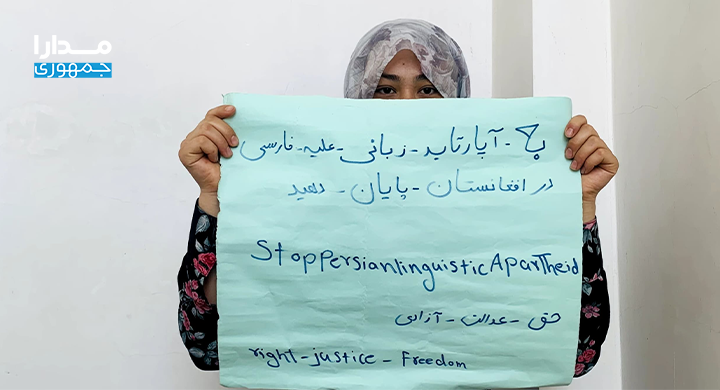 مدارا
جمهوری
به - آپارتاید - زبانی - علیه - فارسی
در افغانستان - پایان - دهید
StopPersianlinguisticAparTheid
حق - عدالت - آزادی
right - justice - Freedom